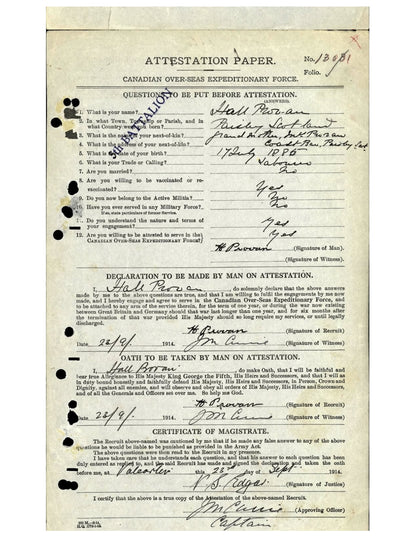 ATTESTATION PAPER.
No. 13
Folio.
CANADIAN OVER-SEAS EXPEDITIONARY FORCE.
BATTALION
QUESTIONS TO BE PUT BEFORE ATTESTATION.
(ANSWERS)
1. What is your name? Hall Provan
2. In what Town, Township or Parish, and in
what Country were you born? Paisley Scotland
3. What is the name of your next-of-kin? Grand mother, Provan
4. What is the address of your next-of-kin?
5. What is the date of your birth? 17 July 1885
6. What is your Trade or Calling? Labourer
7. Are you married? No
8. Are you willing to be vaccinated or re-
vaccinated? Yes
9. Do you now belong to the Active Militia? No
10. Have you ever served in any Military Force? No
If so, state particulars of former Service.
11. Do you understand the nature and terms of
your engagement? Yes
12. Are you willing to be attested to serve in the Yes
CANADIAN OVER-SEAS EXPEDITIONARY FORCE?
H Provan (Signature of Man).
(Signature of Witness).
DECLARATION TO BE MADE BY MAN ON ATTESTATION.
I, Hall Provan, do solemnly declare that the above answers
made by me to the above questions are true, and that I am willing to fulfil the engagements by me now
made, and I hereby engage and agree to serve in the Canadian Over-Seas Expeditionary Force, and
to be attached to any arm of the service therein, for the term of one year, or during the war now existing
between Great Britain and Germany should that war last longer than one year, and for six months after
the termination of that war provided His Majesty should so long require my services, or until legally
discharged.
H Provan (Signature of Recruit)
Date 22/9/ 1914. (Signature of Witness)
OATH TO BE TAKEN BY MAN ON ATTESTATION.
I, Hall Provan, do make Oath, that I will be faithful and
bear true Allegiance to His Majesty King George the Fifth, His Heirs and Successors, and that I will as
in duty bound honestly and faithfully defend His Majesty, His Heirs and Successors, in Person, Crown and
Dignity, against all enemies, and will observe and obey all orders of His Majesty, His Heirs and Successors,
and of all the Generals and Officers set over me. So help me God.
H Provan (Signature of Recruit)
Date 22/9/ 1914. (Signature of Witness)
CERTIFICATE OF MAGISTRATE.
The Recruit above-named was cautioned by me that if he made any false answer to any of the above
questions he would be liable to be punished as provided in the Army Act.
The above questions were then read to the Recruit in my presence.
I have taken care that he understands each question, and that his answer to each question has
been duly entered as replied to, and the said Recruit has made and signed the declaration and taken the oath
before me, at Valcartier this 22nd day of Sept 1914.
(Signature of Justice)
I certify that the above is a true copy of the Attestation of the above-named Recruit.
(Approving Officer)
Captain